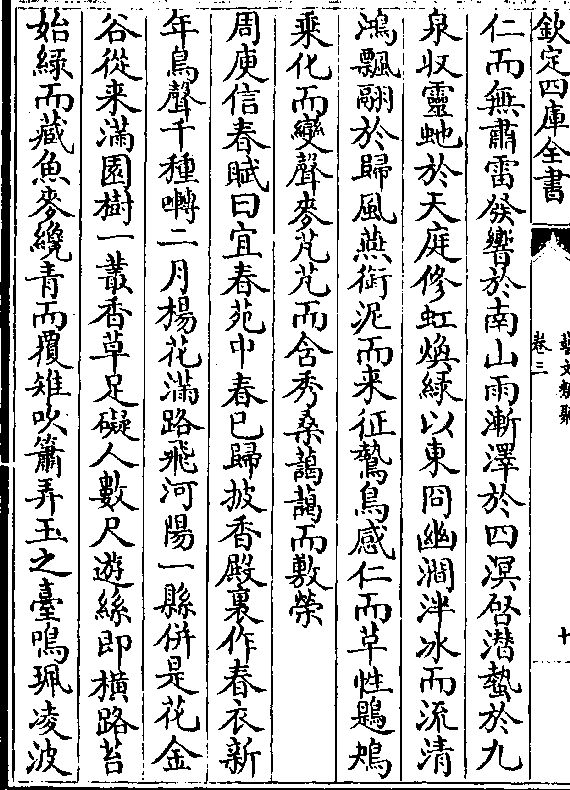 欽定四庫全書
藝文類聚
卷三
十
仁而無肅雷發響於南山雨漸澤於四溟啓潛蟄於九
泉收靈虵於天庭修虹煥緑以東冏幽澗泮冰而流清
鴻飄翮於歸風燕銜泥而来征鷙鳥感仁而草性鶗鴂
乘化而變聲麥芃芃而含秀桑藹藹而敷榮
周庾信春賦曰宜春苑中春已歸披香殿裏作春衣新
年鳥聲千種囀二月楊花滿路飛河陽一縣併是花金
谷從来滿園樹一叢香草足礙人數尺遊絲即横路苔
始緑而藏魚麥纔青而覆雉吹簫弄玉之臺鳴珮凌波